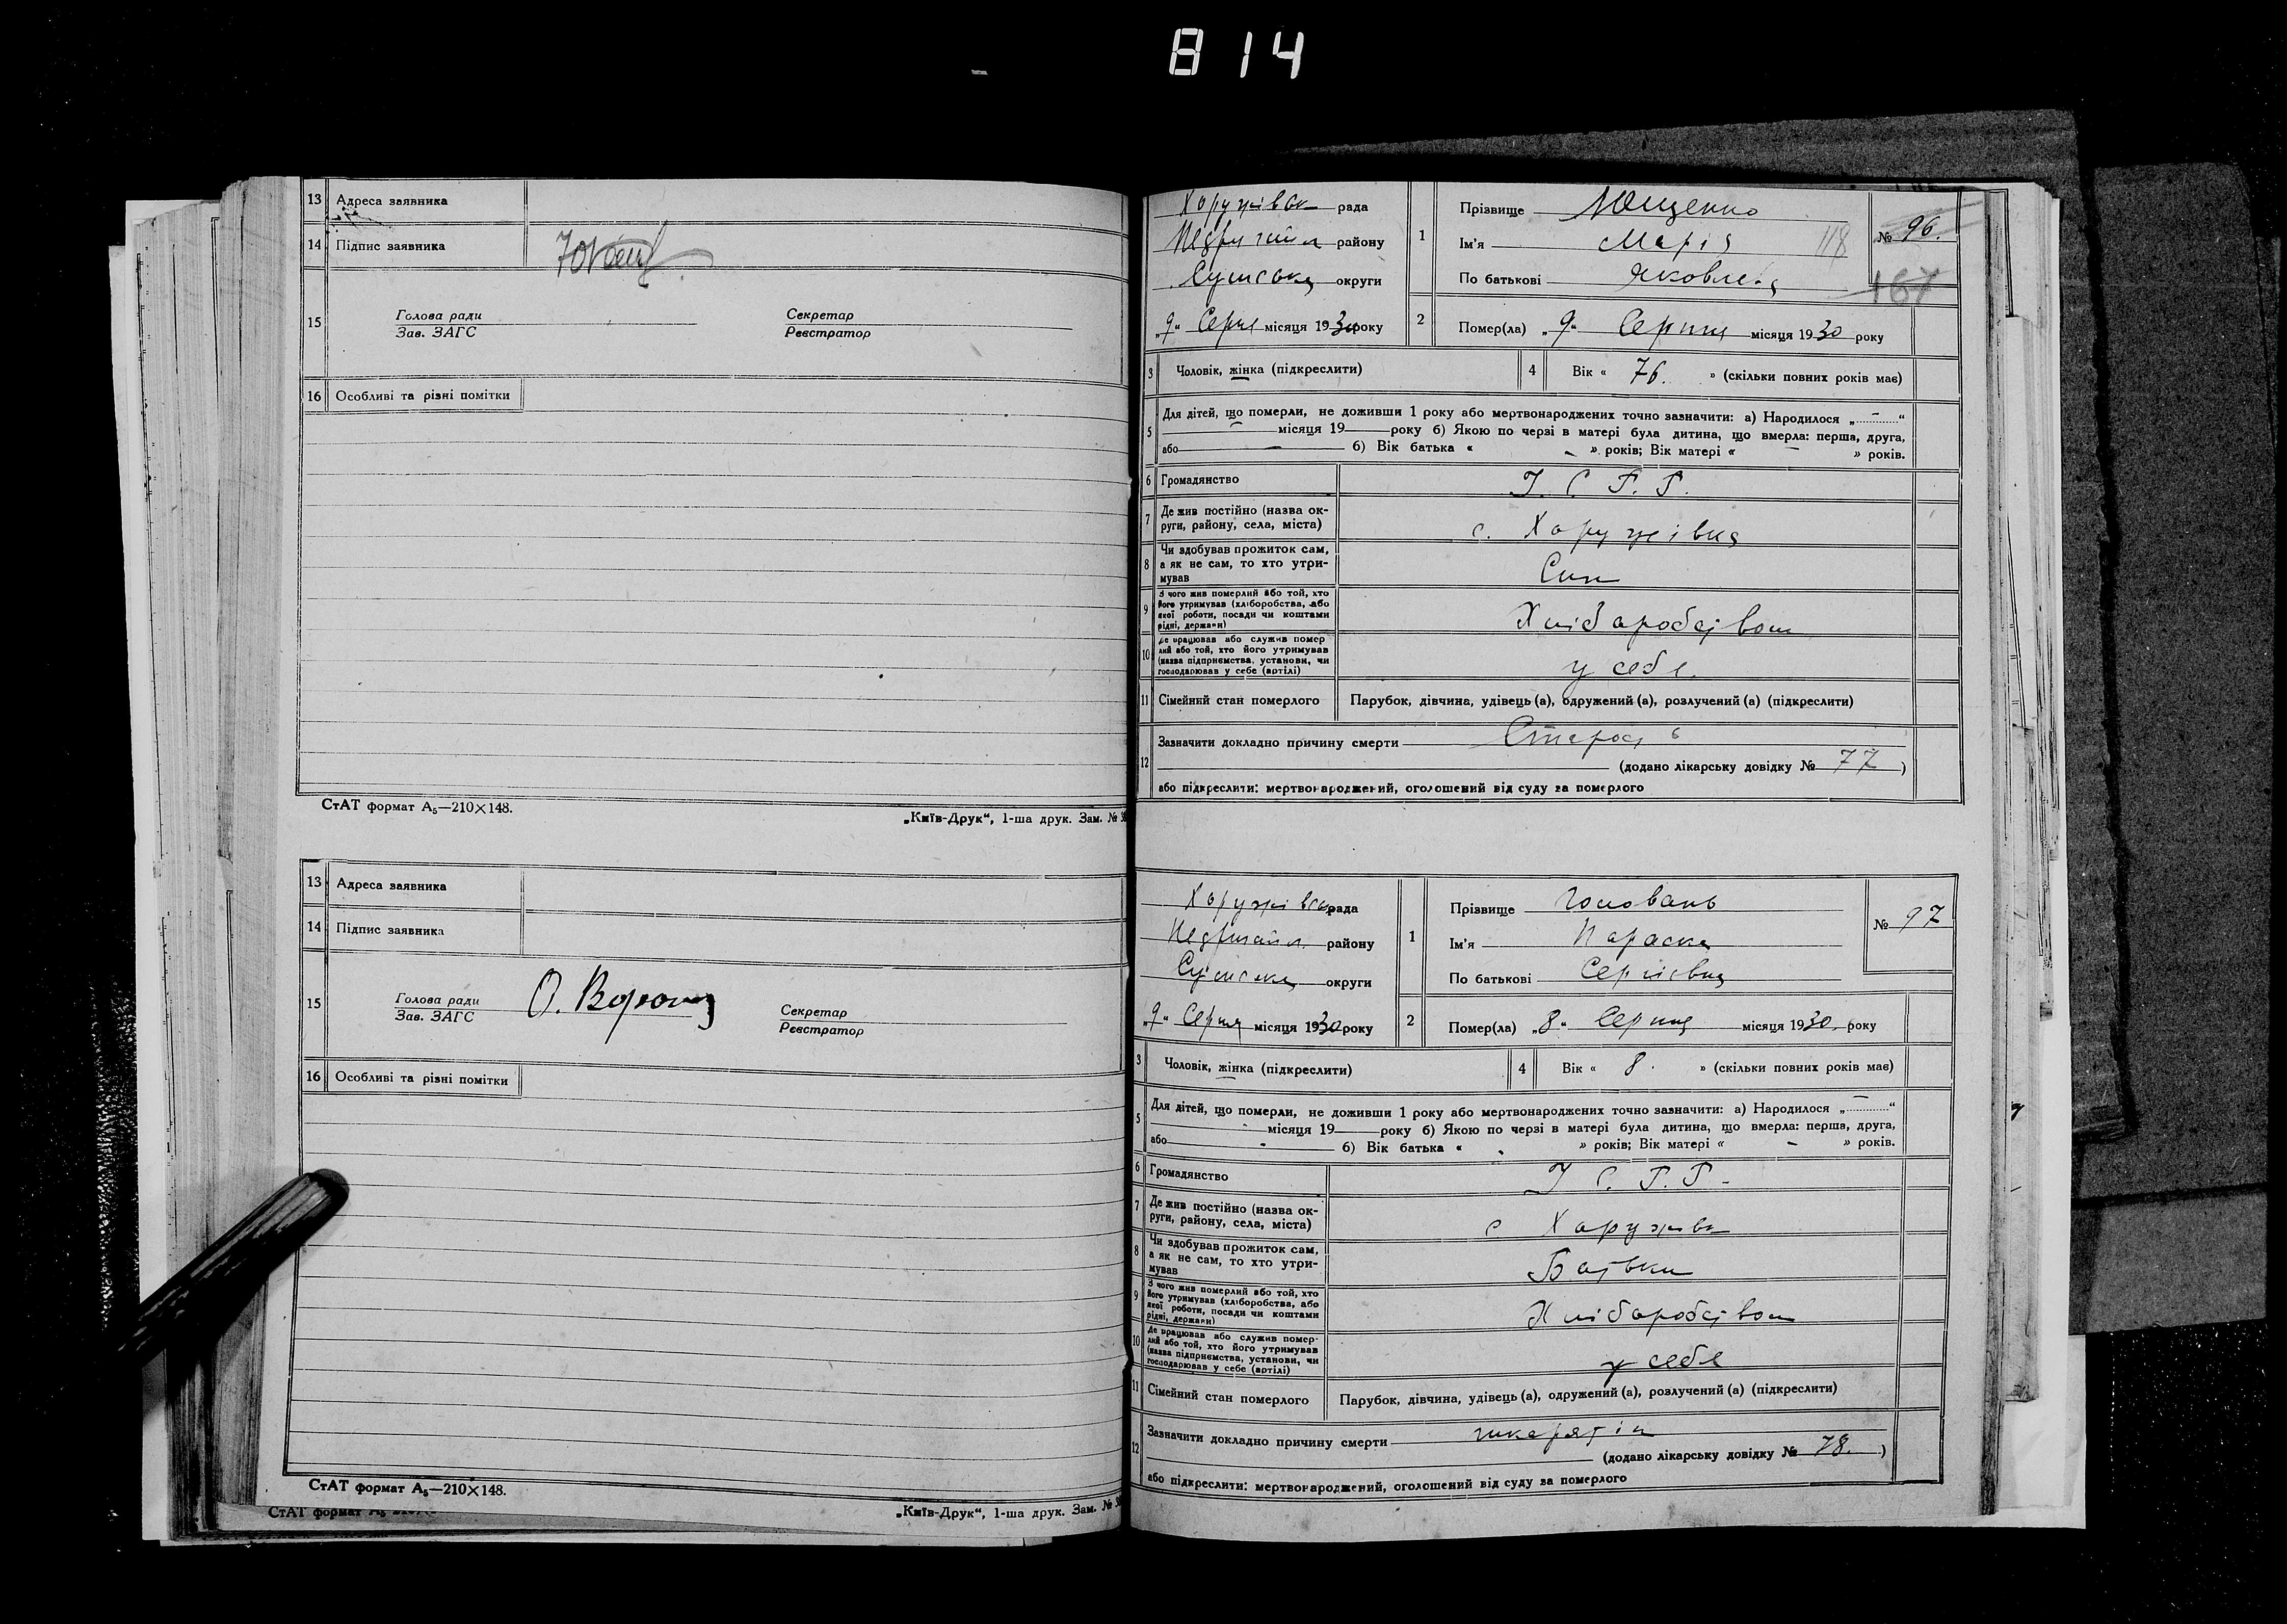 814
13 Адреса заявника
14 Підпис заявника
15 Голова ради
Зав. ЗАГС
Секретар
Реєстратор
16 Особливі та різні помітки
СтАТ формат А₅—210×148.
„Київ-Друк“, 1-ша друк. Зам. №
13 Адреса заявника
14 Підпис заявника
15 Голова ради
Зав. ЗАГС
О.
Секретар
Реєстратор
16 Особливі та різні помітки
СтАТ формат А₅—210×148.
„Київ-Друк“, 1-ша друк. Зам. №
СтАТ формат
Хоружівськ рада
району
Сумська округи
„9“ Серпня місяця 1930 року
1 Прізвище Ющенко
Ім'я Марія 118
По батькові Яковлевна
№ 96.
167
2 Помер(ла) „9“ Серпня місяця 1930 року
3 Чоловік, жінка (підкреслити)
4 Вік « 76. » (скільки повних років має)
5 Для дітей, що померли, не доживши 1 року або мертвонароджених точно зазначити: а) Народилося „ — “
місяця 19 року б) Якою по черзі в матері була дитина, що вмерла: перша, друга,
або б) Вік батька « » років; Вік матері « — » років.
6 Громадянство У. С. Р. Р.
7 Де жив постійно (назва ок-
руги, району, села, міста) с. Хоружівка
8 Чи здобував прожиток сам,
а як не сам, то хто утри-
мував Син
9 З чого жив померлий або той, хто
його утримував (хліборобства, або
якої роботи, посади чи коштами
рідні, держави) Хліборобством
10 Де працював або служив помер-
лий або той, хто його утримував
(назва підприємства, установи, чи
господарював у себе (артілі) у себе.
11 Сімейний стан померлого Парубок, дівчина, удівець(а), одружений(а), розлучений(а) (підкреслити)
12 Зазначити докладно причину смерти Старость
(додано лікарську довідку № 77 )
або підкреслити: мертвонароджений, оголошений від суду за померлого
Хоружівська рада
району
Сумська округи
„9“ Серпня місяця 1930 року
1 Прізвище Головань
Ім'я Параска
По батькові Сергіївна
№ 97
2 Помер(ла) „8“ Серпня місяця 1930 року
3 Чоловік, жінка (підкреслити)
4 Вік « 8. » (скільки повних років має)
5 Для дітей, що померли, не доживши 1 року або мертвонароджених точно зазначити: а) Народилося „ — “
місяця 19 року б) Якою по черзі в матері була дитина, що вмерла: перша, друга,
або б) Вік батька « » років; Вік матері « — » років.
6 Громадянство У С. Р. Р.
7 Де жив постійно (назва ок-
руги, району, села, міста) с Хоружівк
8 Чи здобував прожиток сам,
а як не сам, то хто утри-
мував Батьки
9 З чого жив померлий або той, хто
його утримував (хліборобства, або
якої роботи, посади чи коштами
рідні, держави) Хліборобством
10 Де працював або служив помер-
лий або той, хто його утримував
(назва підприємства, установи, чи
господарював у себе (артілі) у себе
11 Сімейний стан померлого Парубок, дівчина, удівець(а), одружений(а), розлучений(а) (підкреслити)
12 Зазначити докладно причину смерти
(додано лікарську довідку № 78. )
або підкреслити: мертвонароджений, оголошений від суду за померлого